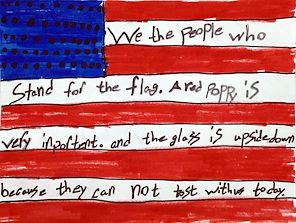 We the people who
Stand for the flag. A red Poppy is
very inportent. and the glass is upsidedown
because they can not tost with us today.